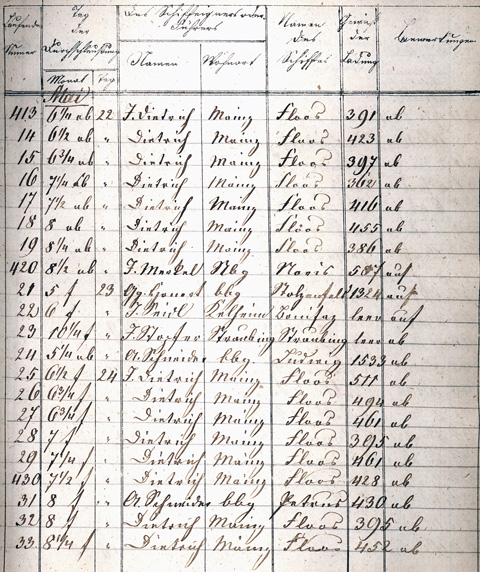 Laufende Numer | Tag der Durchschleusung | Des Schiffeigners oder Führers | Namen des Schiffes | der Ladung | Bemerkungen
Monat | Tag | Namen | Wohnort
Mai
413 6 1/4 ab 22 J. Dietrich Mainz Floos 391 ab
14 6 1/2 ab " Dietrich Mainz Floos 423 ab
15 6 3/4 ab " Dietrich Mainz Floos 397 ab
16 7 1/4 ab " Dietrich Mainz Floos 362 ab
17 7 1/2 ab " Dietrich Mainz Floos 416 ab
18 8 ab " Dietrich Mainz Floos 455 ab
19 8 1/4 ab " Dietrich Mainz Floos 386 ab
420 8 1/2 ab " J. Merkel Nbg Noris 587 auf
21 5 f 23 bbg Stolzenfels 1324 auf
22 6 f " Kelheim Bonifaz leer auf
23 10 1/4 f " J. Stopfer Straubing Straubing leer ab
24 5 1/4 ab " A. Schneider bbg Ludwig 1533 ab
25 6 1/2 f 24 J. Dietrich Mainz Floos 511 ab
26 6 3/4 f " Dietrich Mainz Floos 494 ab
27 6 3/4 f " Dietrich Mainz Floos 461 ab
28 7 f " Dietrich Mainz Floos 395 ab
29 7 1/4 f " Dietrich Mainz Floos 461 ab
430 7 1/2 f " Dietrich Mainz Floos 428 ab
31 8 f " A. Schneider bbg Petrus 430 ab
32 8 f " Dietrich Mainz Floos 395 ab
33 8 1/4 f " Dietrich Mainz Floos 452 ab